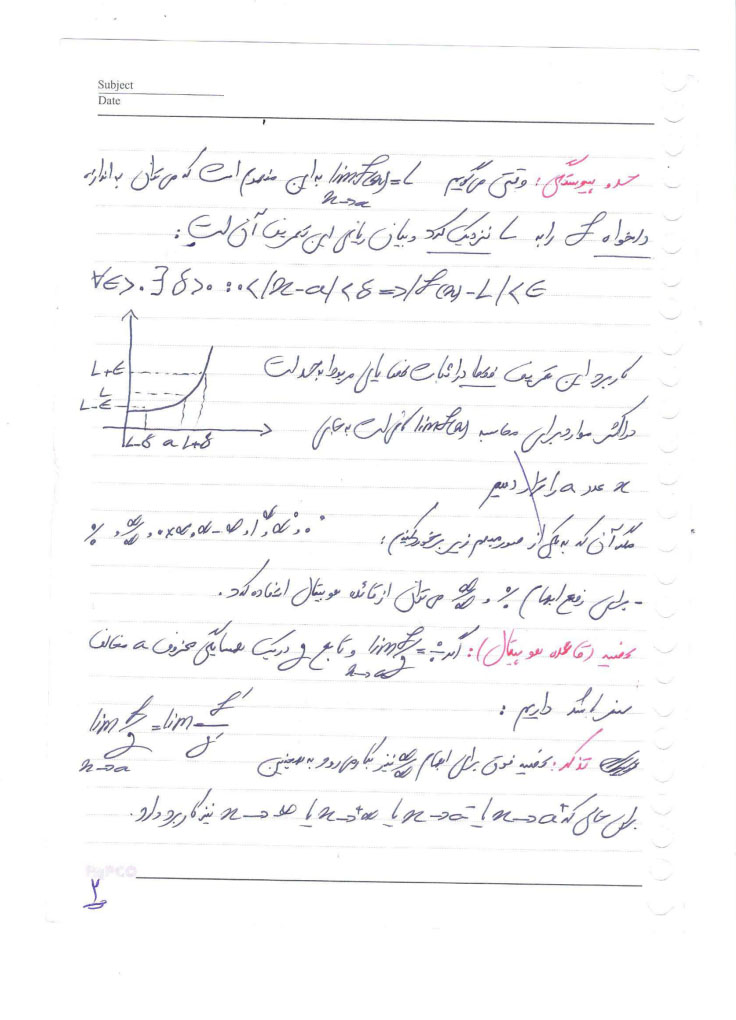 Subject
Date
حد و پیوستگی: وقتی می‌گوییم lim f(x)=L به این مفهوم است که می‌توان به اندازه
x→a
دلخواه f را به L نزدیک کرد و بیان ریاضی این تعریف آن است:
∀ε>0 ∃δ>0 : 0<|x-a|<δ=>|f(x)-L|<ε
کاربرد این تعریف فقط در اثبات قضایای مربوط به حد است
L+ε
L
L-ε
L-δ a L+δ
در اکثر موارد برای محاسبه lim f(x) کافی است به جای
x عدد a را قرار دهیم
مگر آن که به یکی از صور مبهم زیر برخورد کنیم: 0/0 و ∞/∞ و 0×∞ و ∞-∞ و 1^∞ و ∞^0 و 0^0
- برای رفع ابهام 0/0 و ∞/∞ می‌توان از قاعده هوپیتال استفاده کرد.
قضیه (قاعده هوپیتال): اگر 0/0 = lim f/g و تابع g در یک همسایگی محذوف a مخالف
x→a
صفر باشد داریم:
lim f/g = lim f′/g′
x→a
تذکر: قضیه فوق برای ابهام ∞/∞ نیز بکار می‌رود و به همچنین
برای حالی که x→a⁺ یا x→a⁻ یا x→+∞ یا x→-∞ نیز کاربرد دارد.
PAPCO
۲